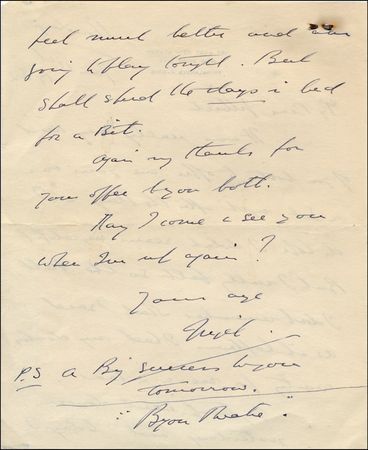 feel much better and am
going to play tonight. But
shall spend the days in bed
for a Bit.
Again my thanks for
your offer & you both.
May I come & see you
when I'm up again?
Yours aye
Nigel.
P.S a Big success to you
tomorrow.
Theatre"